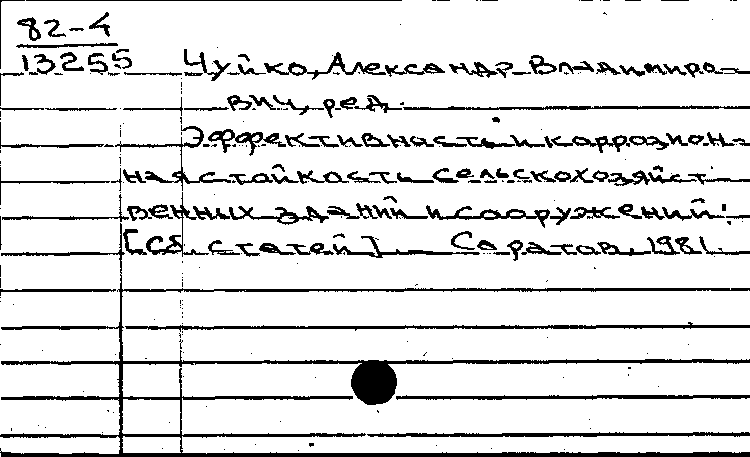 82-4
13255 Чуйко, Александр Владимиро-
вич, ред.
Эффективность и коррозион-
ная стойкость сельскохозяйст-
венных зданий и сооружений:
[Сб. статей]. – Саратов, 1981.